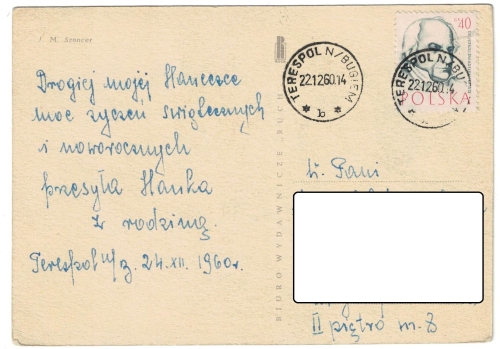 M. Szancer
Drogiej mojej Haneczce
moc życzeń świątecznych
i noworocznych
przesyła Hanka
z rodziną.
Terespol n/B. 24.XII. 1960r.
BIURO WYDAWNICZE „RUCH”
TERESPOL N/BUGIEM
22.12.60.14
b
40
POLSKA
TERESPOL N/BU
22.12.60.14
W. Pani
II piętro m. 8